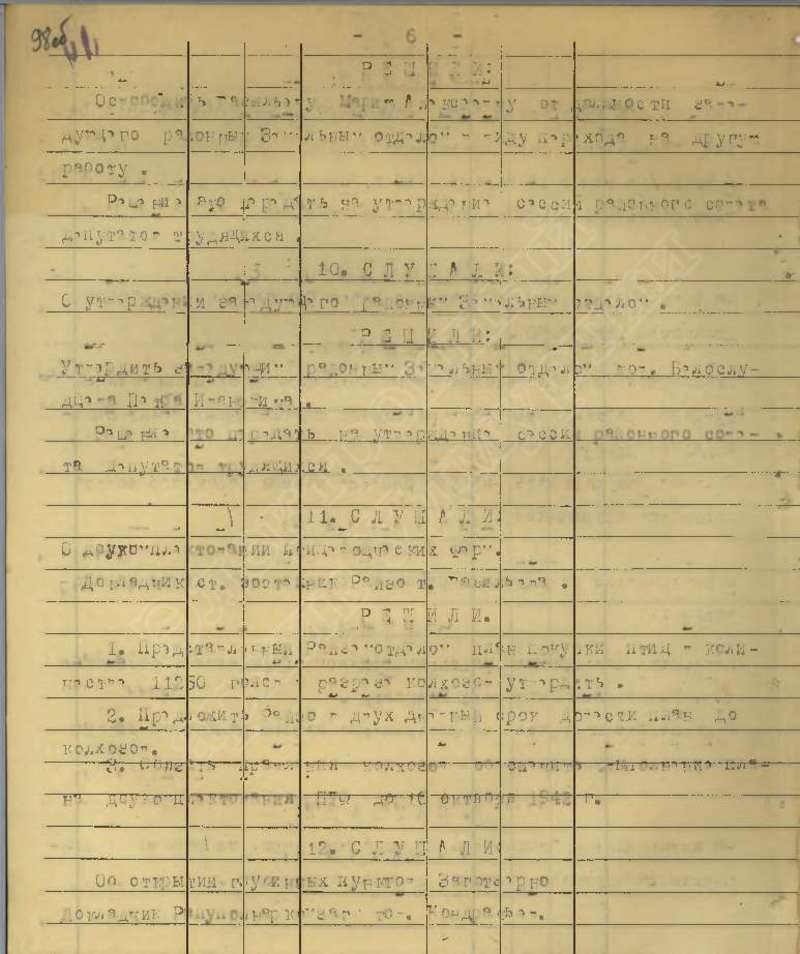 98об
- 6 -
РЕШИЛИ:
Освободить Васильеву Марию от должности заве-
дующего районным Земельным отделом ввиду перехода на другую
работу .
Решение это передать на утверждение сессии районного совета
депутатов трудящихся .
10. СЛУШАЛИ:
О утверждении заведующего районным Земельным отделом .
РЕШИЛИ:
Утвердить заведующим районным Земельным отделом тов. Белослу-
дцева Петра Ивановича .
Решение это передать на утверждение сессии районного сове-
та депутатов трудящихся .
11. СЛУШАЛИ:
О доукомплектовании птицеводческих ферм.
Докладчик ст. зоотехник Райзо т. Васильева .
РЕШИЛИ.
1. Представленный Райземотделом план покупки птиц в коли-
честве 11250 голов в разрезе колхозов утвердить .
2. Предложить Райзо в двух дневный срок довести план до
колхозов.
3. Обязать правления колхозов обеспечить выполнение пла-
на доукомплектования ПТФ до октября 1942 г.
12. СЛУШАЛИ
Об открытии глубинных пунктов Заготзерно
Докладчик тов. Кондратьев.